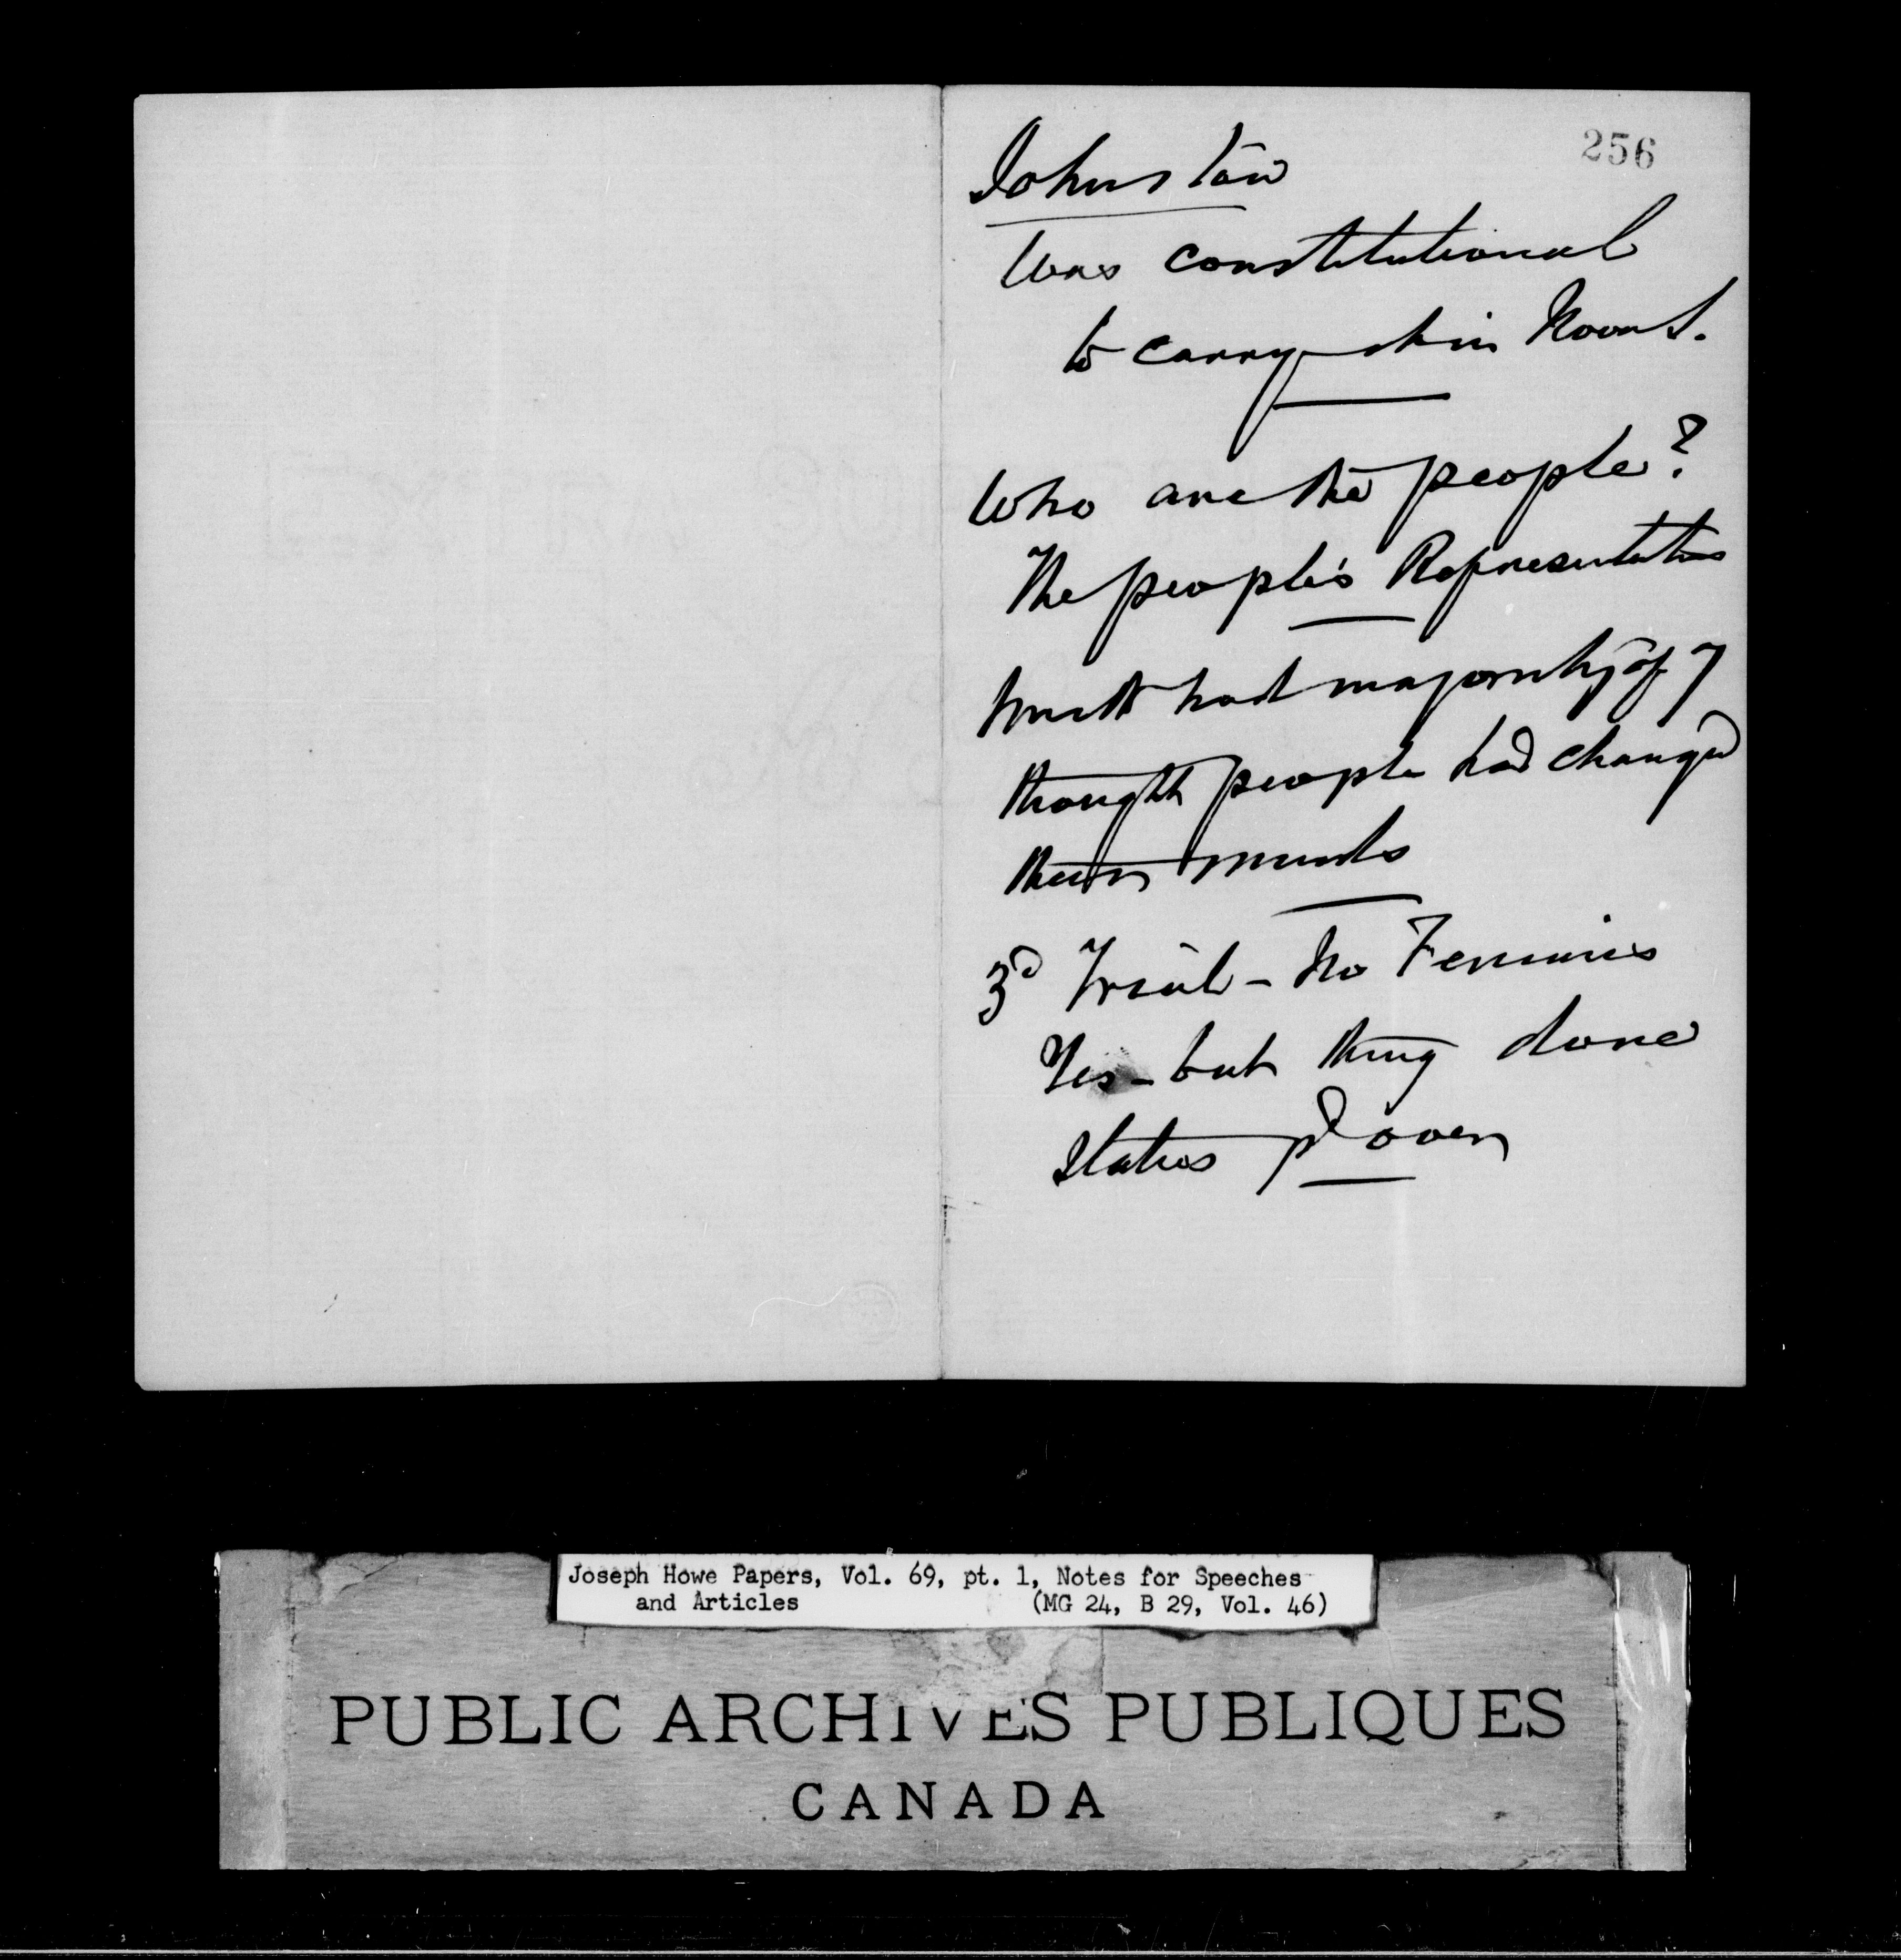 256
Johnston
Was constitutional
to carry it in Nova S.
Who are the people?
The people's Representatives
had majority of 7
thought people had changed
their minds
3d Trial - No Fenians
Yes - but thing done
States
Joseph Howe Papers, Vol. 69, pt. 1, Notes for Speeches
and Articles (MG 24, B 29, Vol. 46)
PUBLIC ARCHIVES PUBLIQUES
CANADA